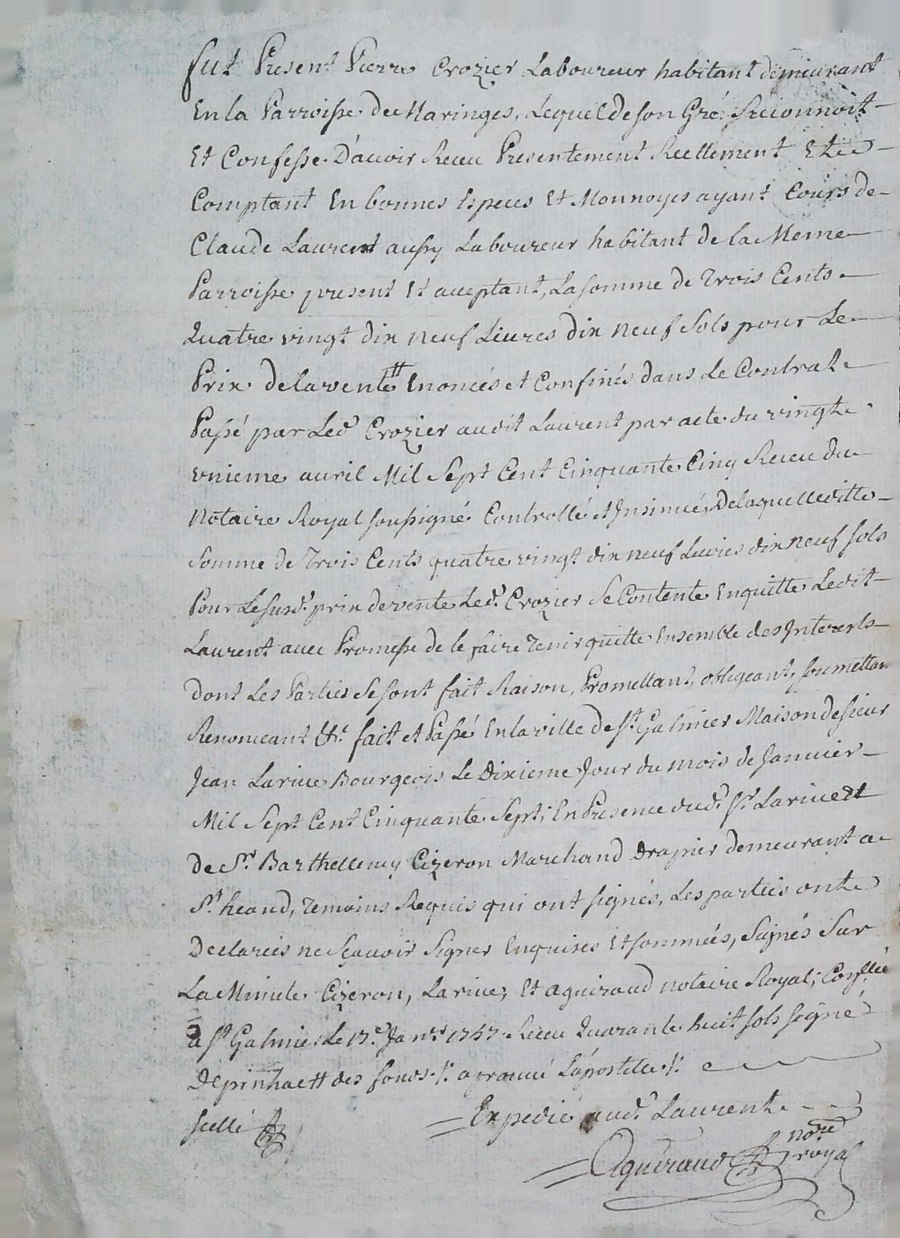 fut Present Pierre Crozier Laboureur habitant demeurant
En la Parroisse de Maringes, Lequel de son Gré Reconnoit
Et Confesse D'avoir Receu Presentement Reellement Et
Comptant En bonnes Especes Et Monnoyes ayant Cours de
Claude Laurent aussy Laboureur habitant de la Meme
Parroisse present Et acceptant, La somme de Trois Cents
Quatre vingt dix neuf Livres dix neuf sols pour Le
Prix de la vente # Enoncés et Confinés dans Le Contrat
Passé par Led. Crozier audit Laurent par acte du vingt
unieme avril Mil Sept Cent Cinquante Cinq Receu du
Notaire Royal soussigné Controllé et Insinué, De laquelle ditte
Somme de Trois Cents quatre vingt dix neuf Livres dix neuf sols
Pour Le susd. prix de vente Led. Crozier Se Contente Enquitte Ledit
Laurent avec Promesse de le faire Tenir quitte Ensemble des Interets
dont Les Parties Se sont fait Raison, Promettant, obligeant, soumettan
Renoncant &c. fait et Passé En la ville de St. Galmier Maison de sieur
Jean Larive Bourgeois Le Dixieme Jour du mois de Janvier
Mil Sept Cent Cinquante Sept; En Presence dud. Sr. Larive et
de Sr. Barthellemy Cizeron Marchand Drapier demeurant a
St. heand, Temoins Requis qui ont signés, Les parties ont
Declarées ne Sçavoir Signer Enquises Et sommées, Signés Sur
La Minute Cizeron, Larive, Et aguiraud notaire Royal; Conllé
a St. Galmier Le 17e. Janer. 1757 Receu Quarante huit sols signé
Depinhac # des fonds /. aprouvé L'apostille /.
scellé Expedié aud. Laurent
Aguiraud nore. royal